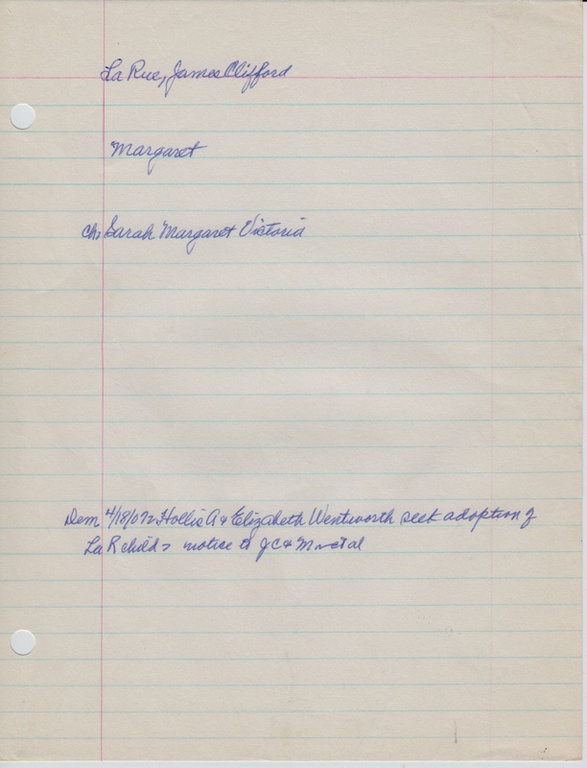 La Rue, James Clifford
Margaret
ch: Sarah Margaret Victoria
Dem 4/18/07: Hollis A & Elizabeth Wentworth seek adoption of
La R child > notice to J C & M et al